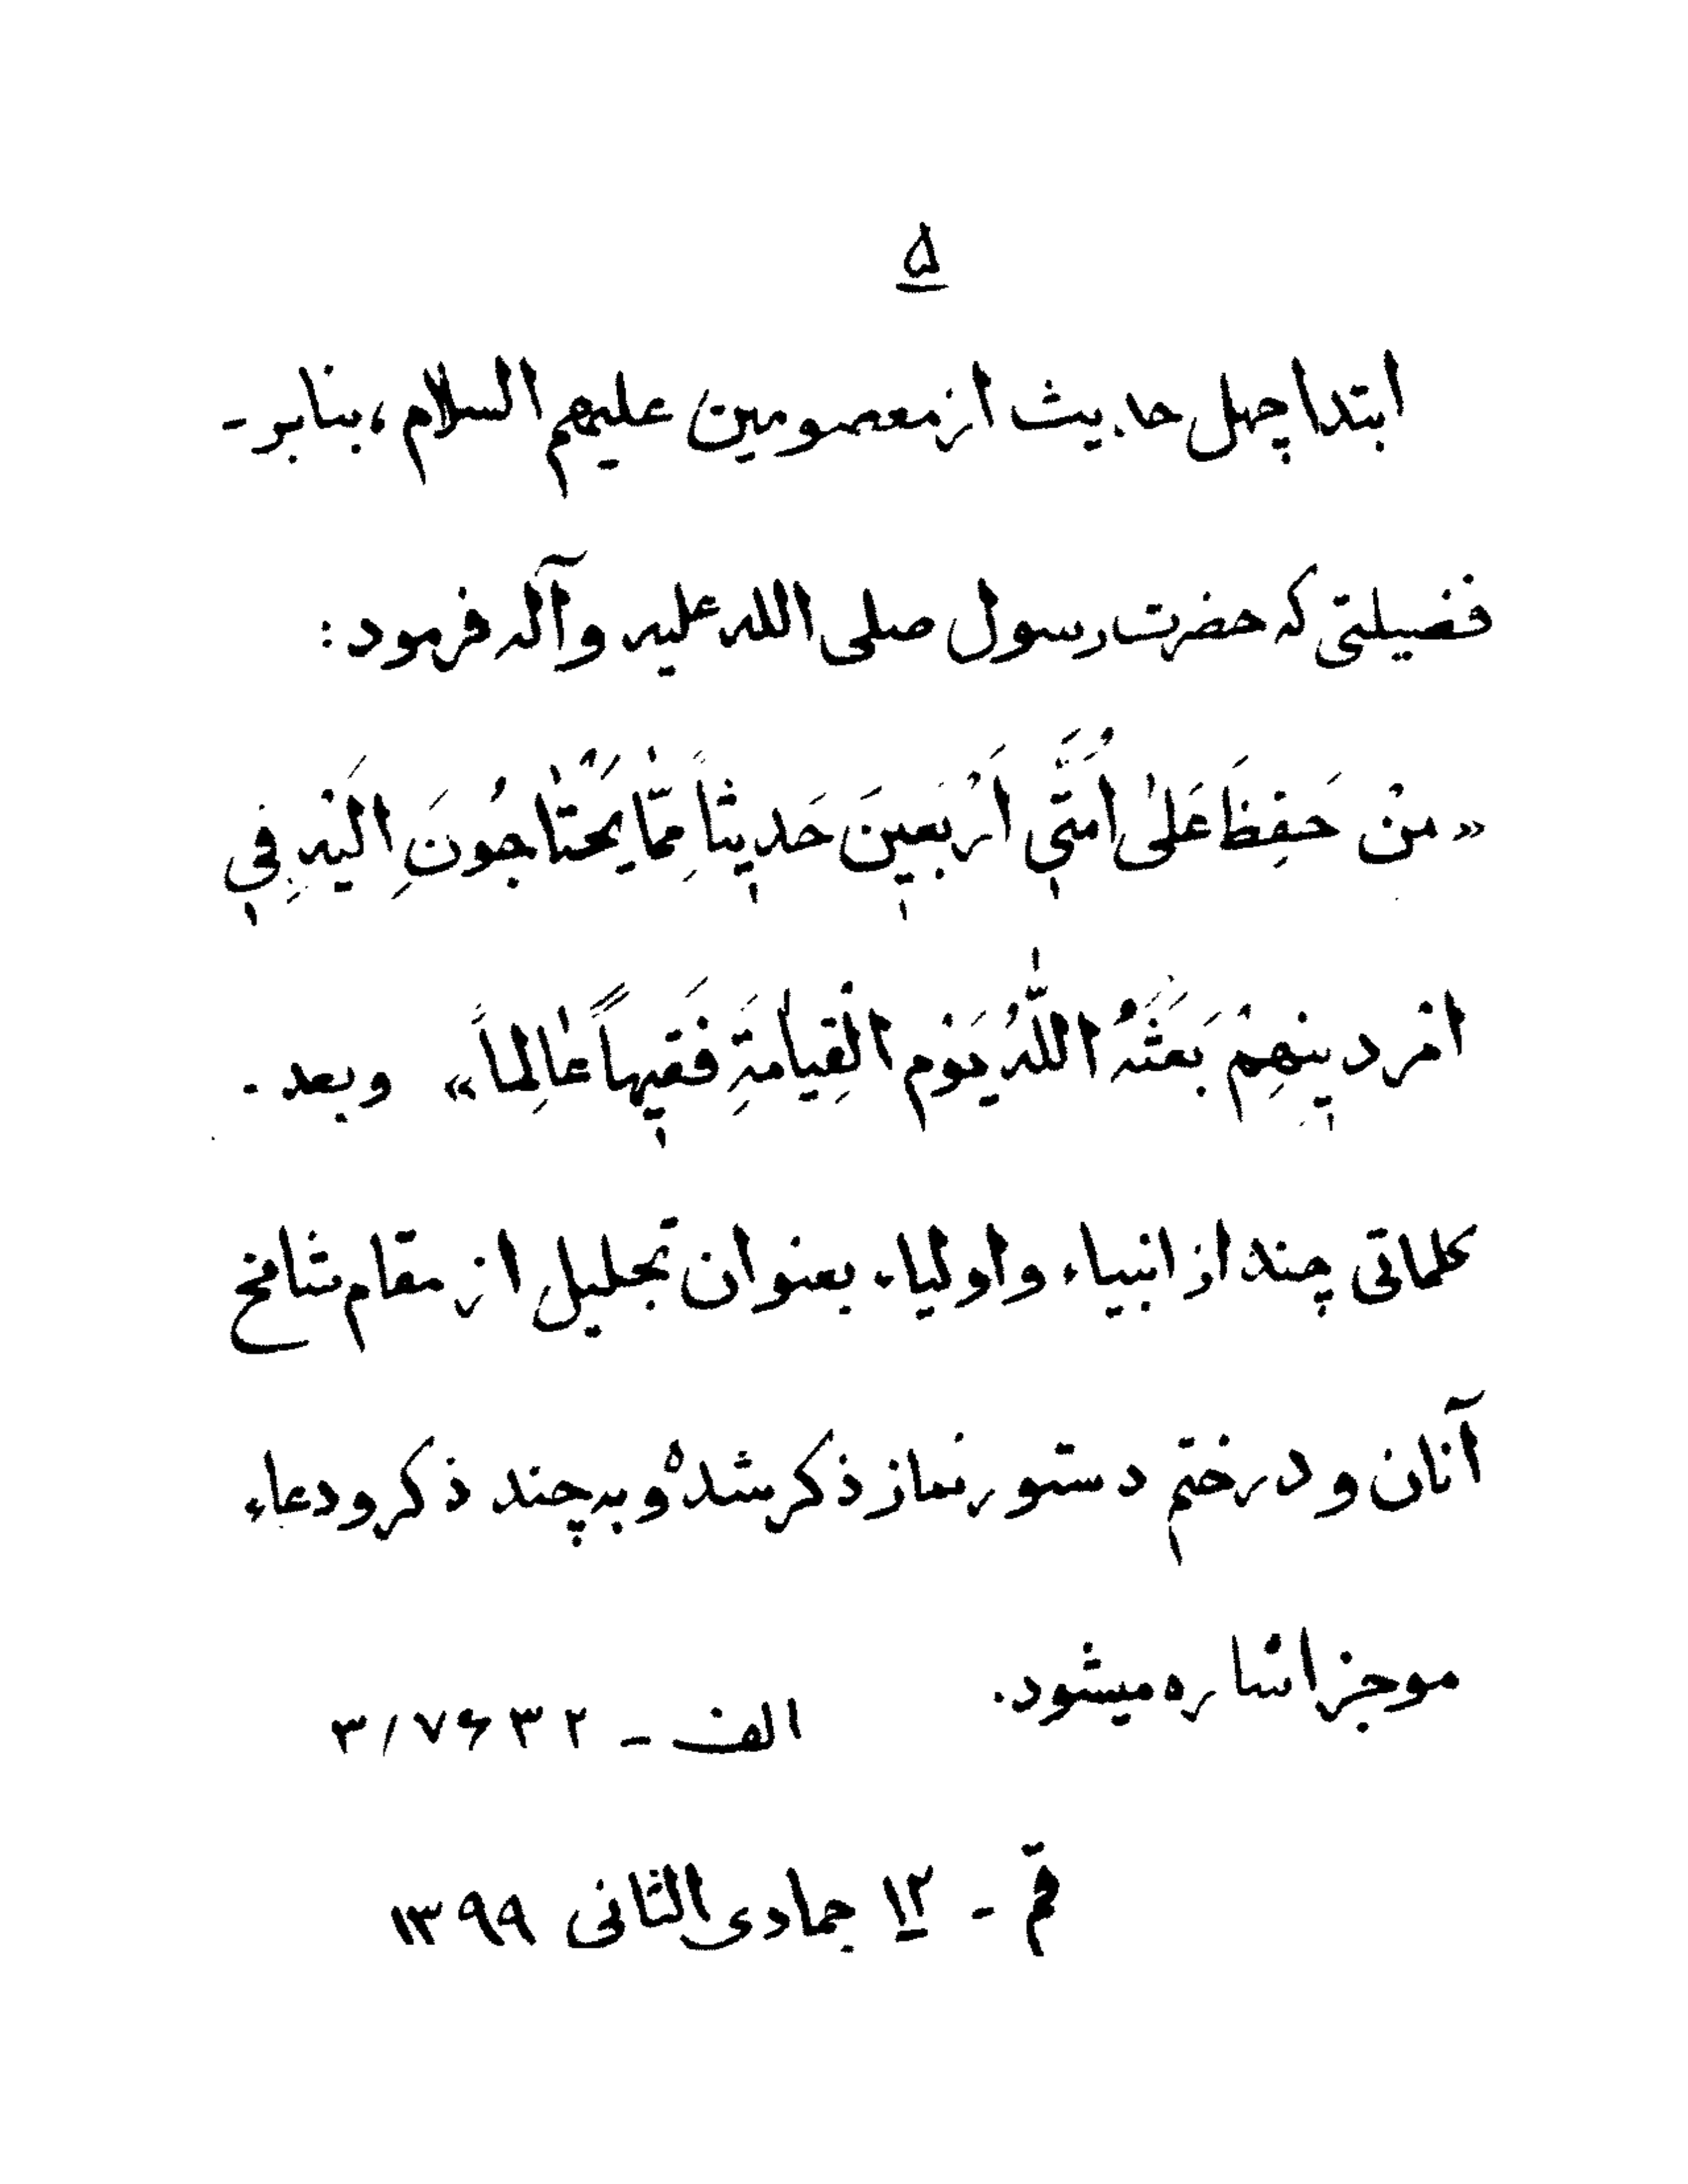 ۵
ابتدا چهل حدیث از معصومین علیهم السلام، بنابر-
فضیلتی که حضرت رسول صلی الله علیه و آله فرمود:
«مِنْ حَفِظَ عَلیٰ اُمَّتَي اَرْبَعینَ حَدیثاً مِمّٰا یَحْتٰاجُونَ اِلَیْهِ فِي
امر دینِهِمْ بَعَثَهُ اللّٰهُ یَوْم الْقِیٰامَةِ فَقیهاً عٰالِماً» وبعد.
کلماتی چند از انبیاء و اولیاء بعنوان تجلیل از مقام شامخ
آنان و در ختم دستور نماز ذکر شده و به چند ذکر و دعاء
موجز اشاره میشود.
الف - ۳/۷۶۳۲
قم - ۱۲ جمادی الثانی ۱۳۹۹